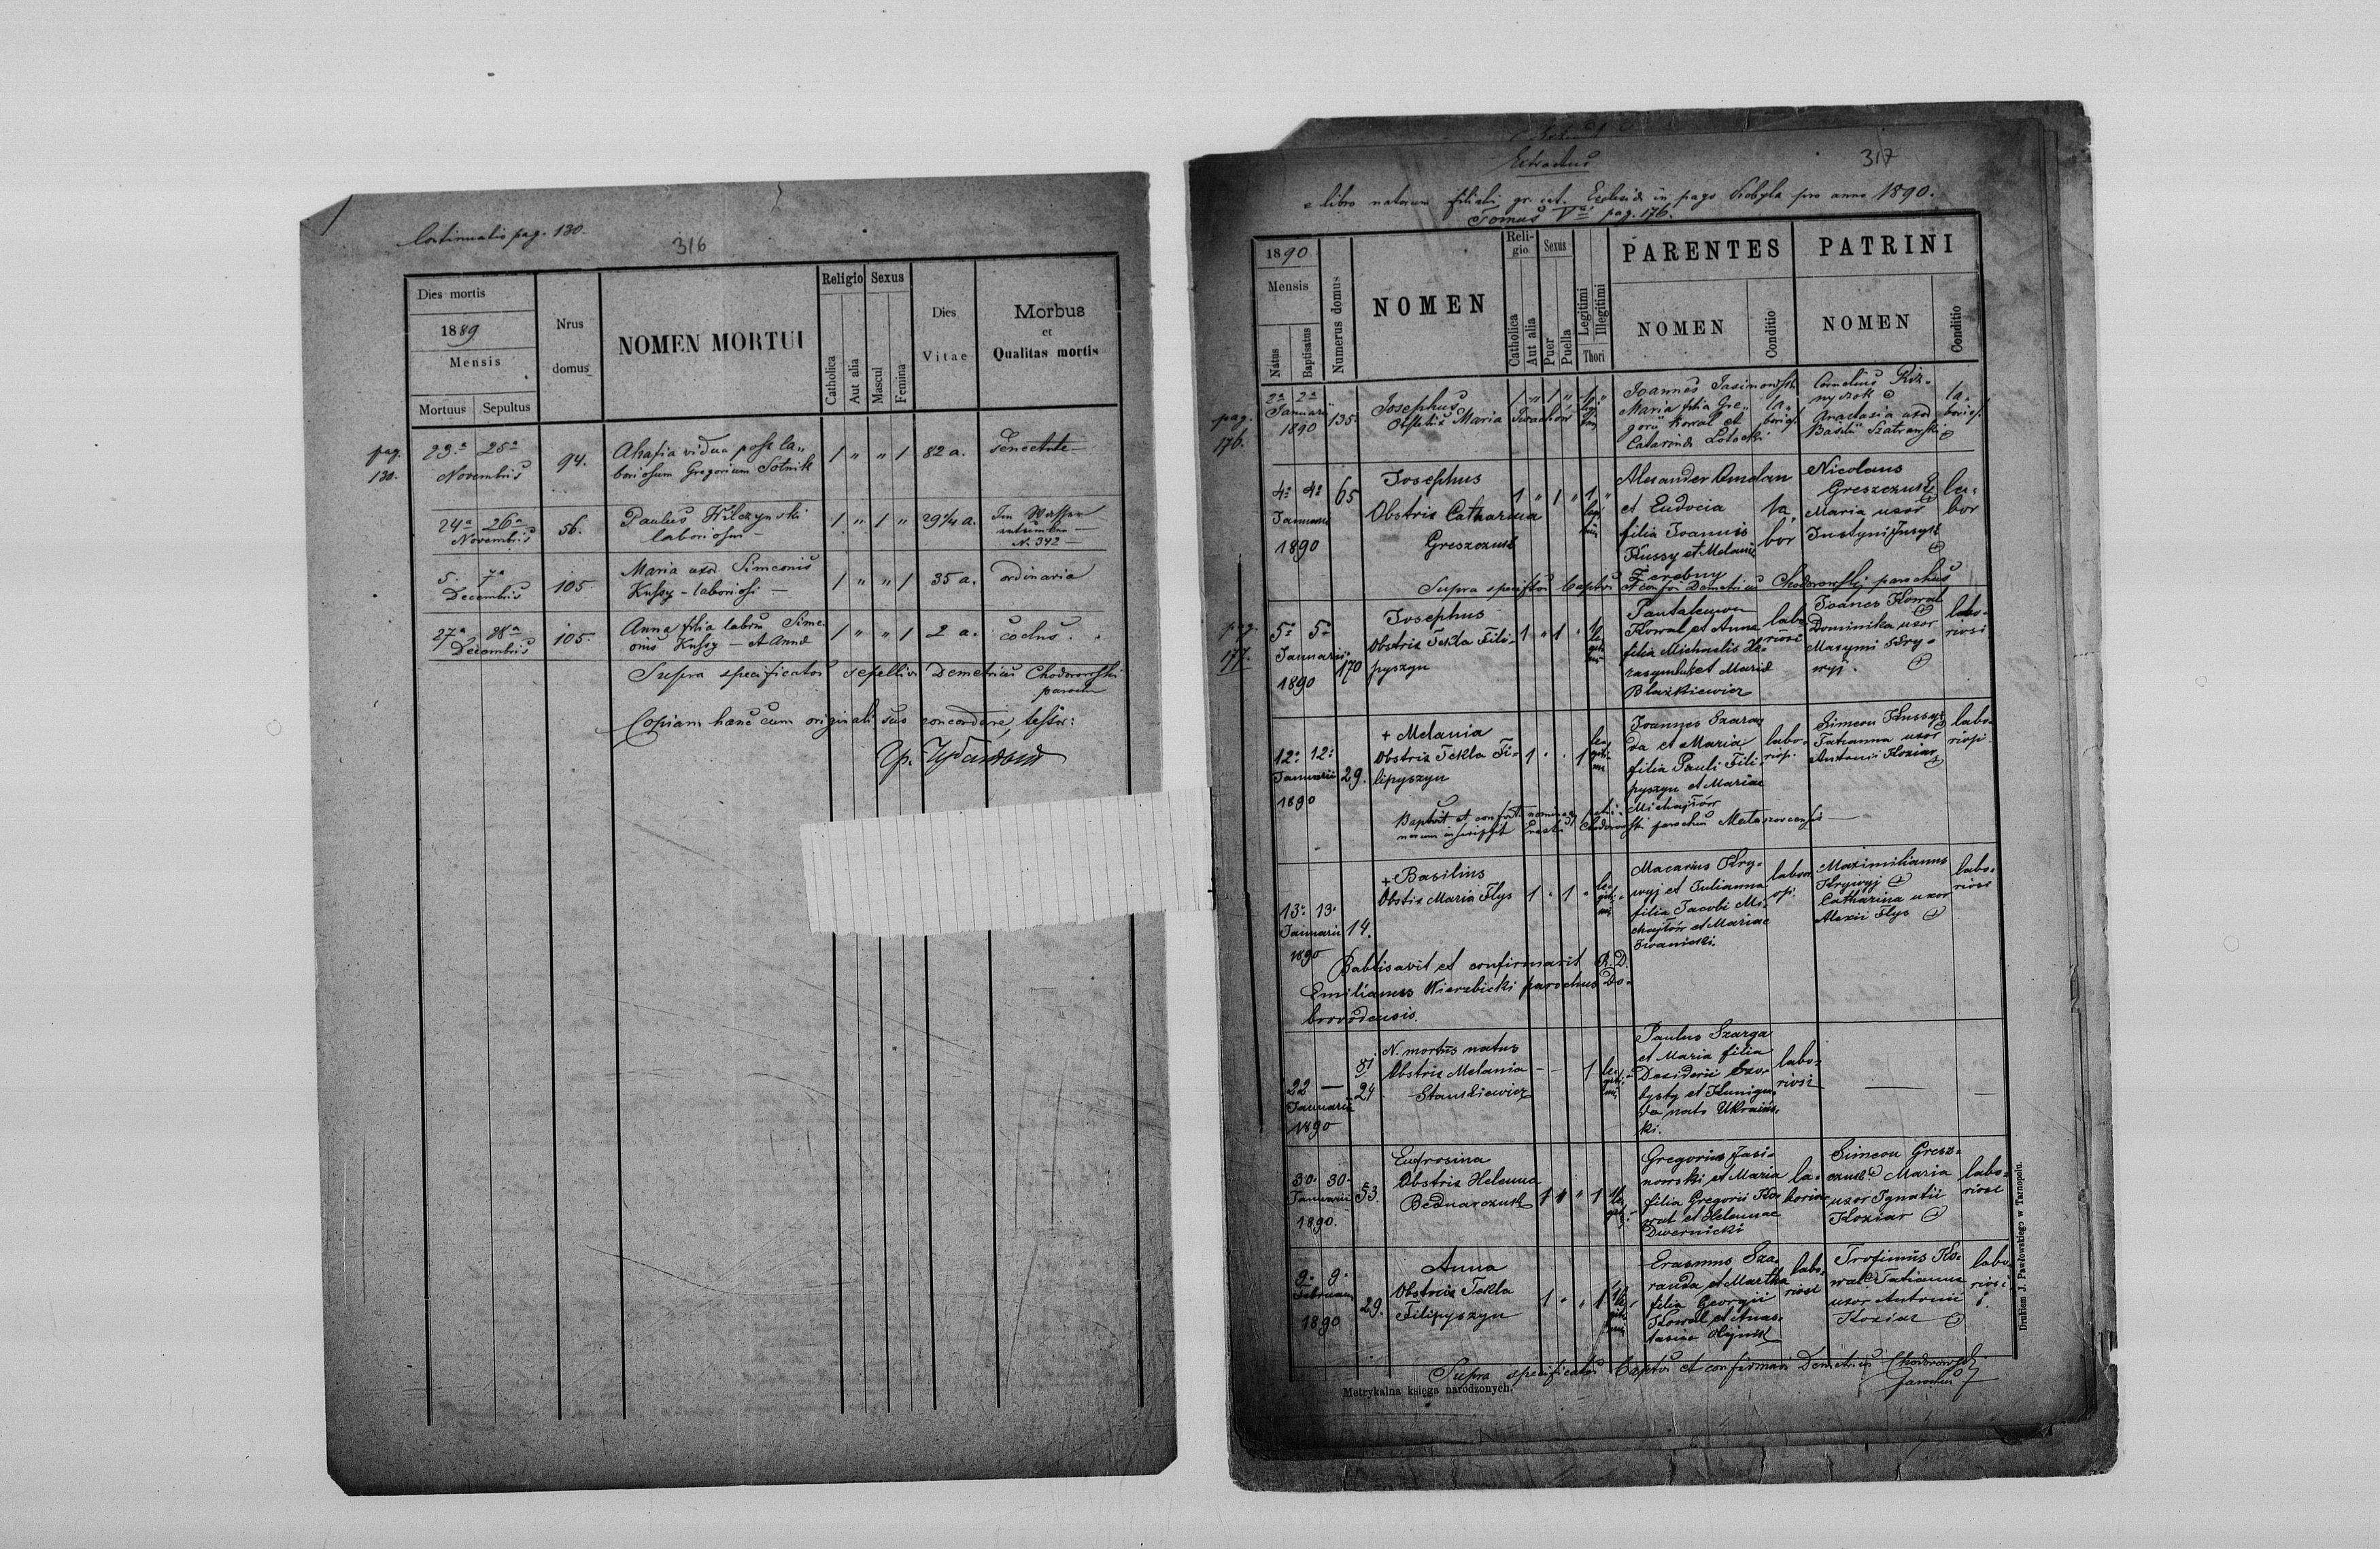 Continuatio pag. 130.
316
Dies mortis
1889
Mensis
Mortuus Sepultus
Nrus domus
NOMEN MORTUI
Religio
Catholica
Aut alia
Sexus
Mascul
Femina
Dies Vitae
Morbus
et
Qualitas mortis
pag. 130.
23ª 25ª Novembris 94. Ahafia vidua post la„ 1 „ „ 1 82 a. Senectute
boriosum Gregorium Sotnik
24ª 26ª Novembris 56. Paulus Wilczynski 1 „ 1 „ a.
laboriosus
N. 342
5. 7ª Decembris 105. Maria uxor Simeonis 1 „ „ 1 35 a. ordinaria
Kussy - laboriosi -
27ª 28ª Decembris 105. Anna filia labor. Sime- 1 „ „ 1 2 a.
onis Kussy - et Annae
Supra specificatos sepelivi Demetrius Chodorowski
parochus
Copiam hanc cum originali suo concordare, testor:
317
Extractus
e libro natorum filialis gr. cat. Ecclesiae in pago Kobyla pro anno 1890.
Tomus V pag. 176.
1890
Mensis
Natus
Baptisatus
Numerus domus
NOMEN
Religio
Catholica
Aut alia
Sexus
Puer
Puella
Legitimi
Illegitimi
Thori
PARENTES
NOMEN
Conditio
PATRINI
NOMEN
Conditio
pag. 176.
2ª 2ª Januarii 1890
135.
Josephus
Obstetrix Maria
1 „ 1 „
Joannes Jasinowski
Maria filia Gre„
gorii Kowal et
Catarinae Lotocki
la„
borios.
Cornelius
Anastasia uxor
Basilii Szatranski
la„
borios.
4ª 4ª
Januarii
1890
65
Josephus
Obstrix Catharina
Greszczuk
1 „ 1 „ 1 „
Alexander Omelan
et Eudocia
filia Joannis
Kussy et Melanie
Zerebny
la„
bor
Nicolaus
Greszczuk
Maria uxor
Justyni
la„
bor
Supra specificatos baptisavi et confirmavi Demetrius Chodorowski parochus
pag. 177.
5ª 5ª
Januarii
1890
170
Josephus
Obstrix Tekla Fili-
pyszyn
1 „ 1 „
Pantaleimon
Kowal et Anna
filia Michaelis He-
rasymluk et Mariae
Blaszkiewicz
labo
riosi
Joannes Kowal
Dominika uxor
Maxymi Kry-
wyj.
labo-
riosi
12ª 12ª
Januarii
1890
29.
+ Melania
Obstrix Tekla Fi-
lipyszyn
1 . . 1
legiti-
mi
Joannes Szaran-
da et Maria
filia Pauli Fili-
pyszyn et Mariae
Michajlów
labo-
riosi.
Simeon Kussy
Tatianna uxor
Antonii Koziar
labo-
riosi
Chodorowski parochus
13. 13.
Januarii
1890
14.
+ Basilius
Obstrix Maria Flys
1 . 1 „
legiti-
mi
Macarius Kry-
wyj et Julianna
filia Jacobi Mi-
chajlów et Mariae
Iwanicki.
labori
osi.
Maximilianus
Krywyj
Catharina uxor
Alexii Flys
labo-
riosi
Babtisavit et confirmavit R. D.
Emilianus Wierzbicki parochus Do-
browodensis.
22 —
Januarii
1890
81
24
N. mortus natus
Obstrix Melania
Stankiewicz
— — 1
legiti-
mi
Paulus Szarga
et Maria filia
Deziderii Szor-
bysty et Kunigun-
da nata Ukraińs-
ki.
labo-
riosi
—
—
30. 30.
Januarii
1890.
53.
Eufrosina
Obstrix Helenna
Bednarczuk
1 „ „ 1
Gregorius Jasi-
nowski et Maria
filia Gregorii Ko-
wal et Helennae
Dwernicki
la-
boriosi
Simeon Gresz-
czuk Maria
uxor Ignatii
Koziar
labo-
riosi
9. 9.
Februarii
1890
29.
Anna
Obstrix Tekla
Filipyszyn
1 . . 1
Erasmus Sza-
randa et Martha
filia Georgii
Kowal et Anas-
tasiae Olijnyk
labo-
riosi
Trofimus Ko-
wal Tatianna
uxor Antonii
Koziar
labo-
riosi.
Supra specificatos baptisavi et confirmavi Demetrius Chodorowski
parochus
Metrykalna księga narodzonych.
Drukiem J. Pawłowskiego w Tarnopolu.